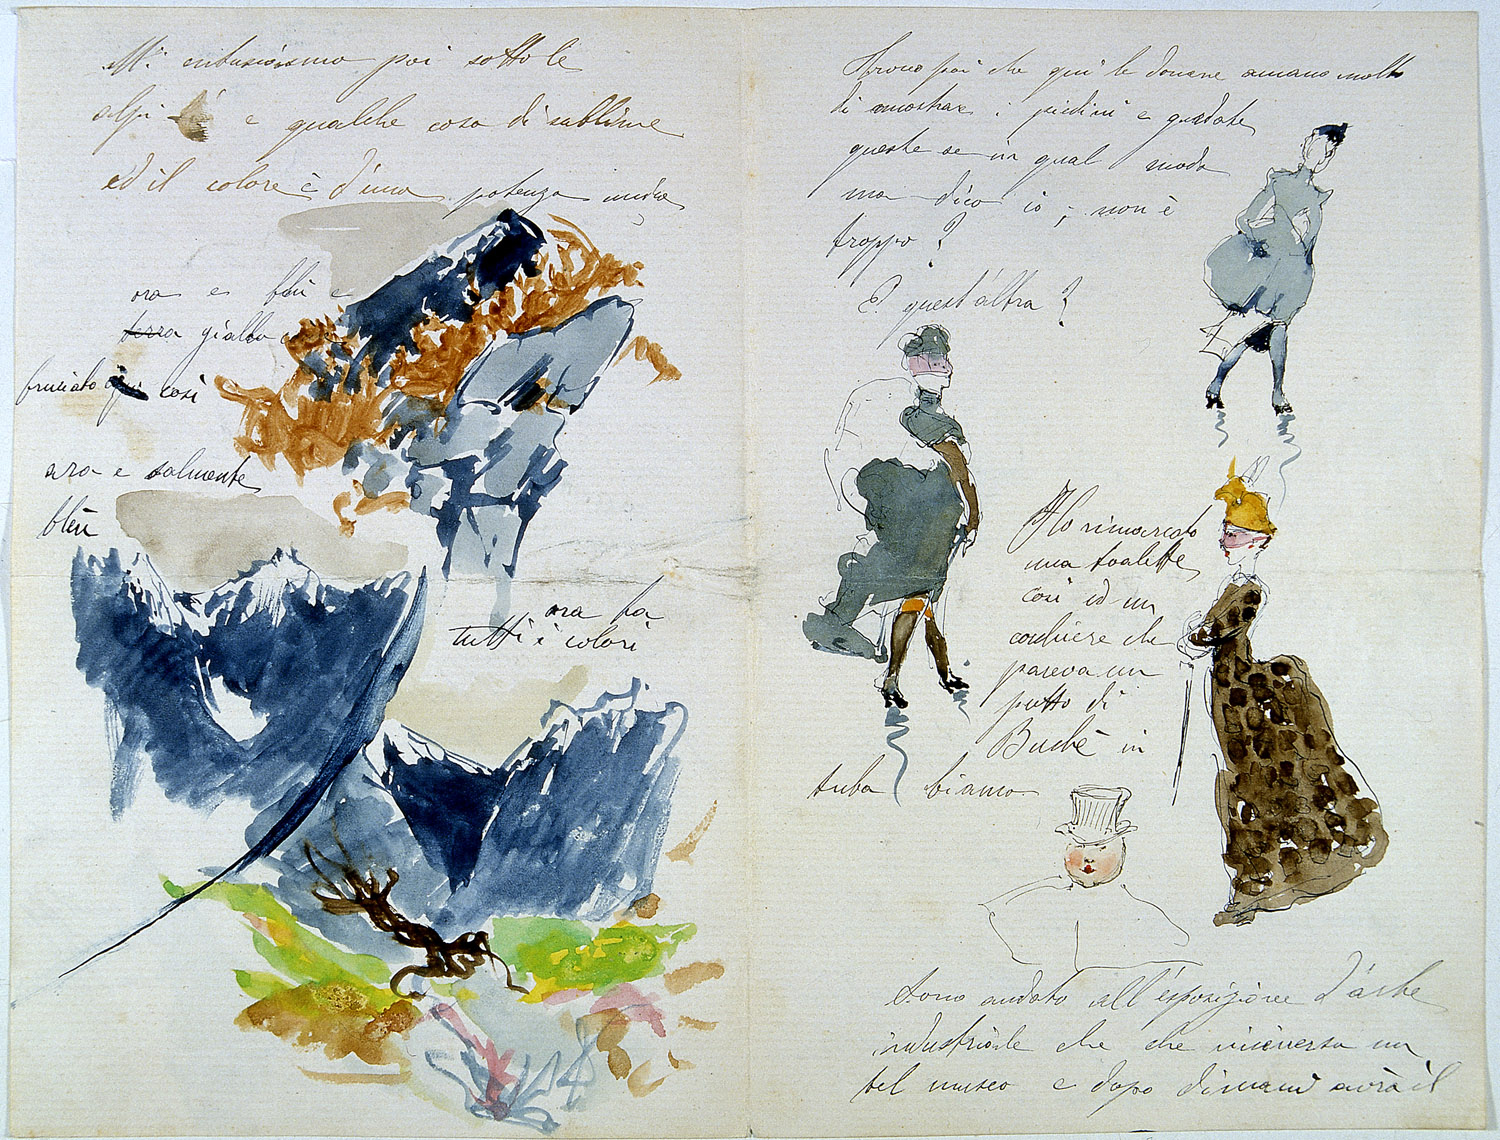 Mi entusiasmo poi sotto le
alpi è e qualche cosa di sublime
ed il colore è d'una potenza unica
ora e bleu e
terra giallo
bruciato qui così
ora e solmente
bleu
ora ha
tutti i colori
trovo poi che qui le donne amano molto
di mostrar i piedini e guardate
queste se in qual modo
ma dico io, non è
troppo?
E quest'altra?
Ho rimarcato
una toalette
così ed un
cochiere che
pareva un
putto di
Buchè in
tuba bianca
sono andato all'esposizione d'arte
industriale che che viceversa un
bel museo e dopo dimani avrà il